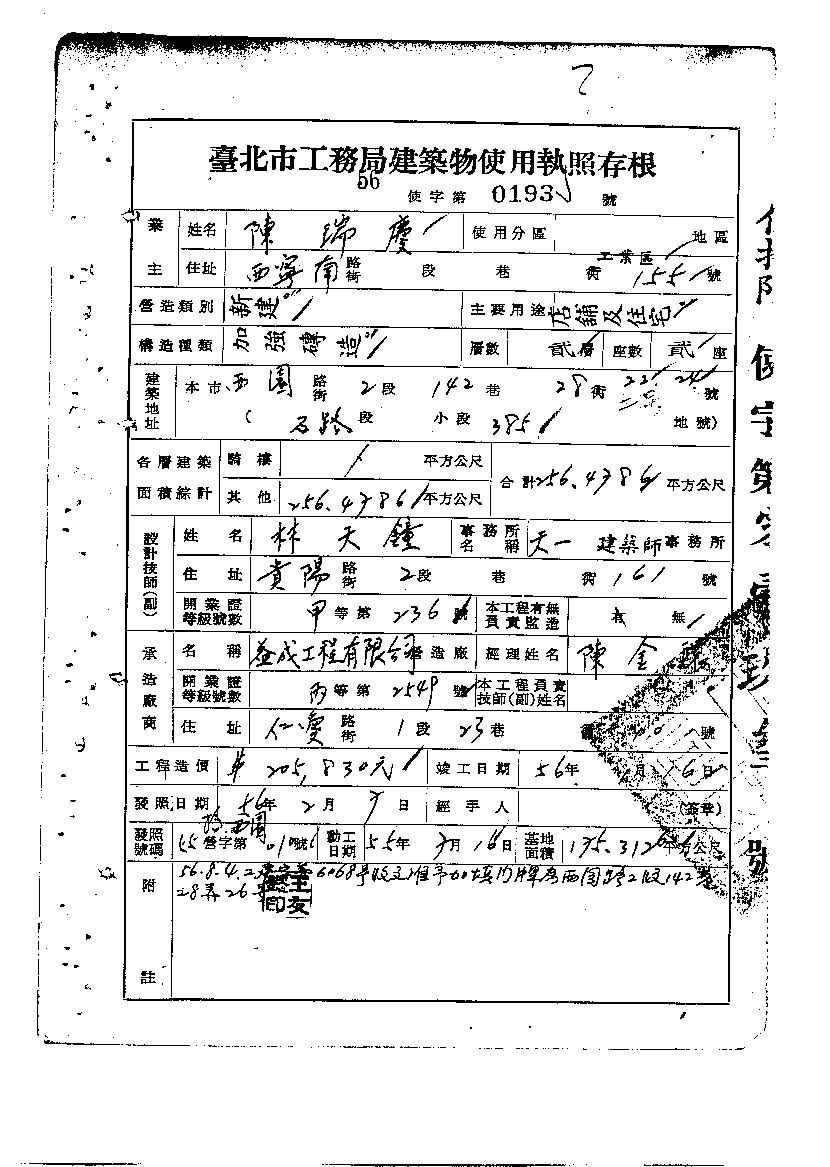 臺北市工務局建築物使用執照存根
56 使字第 0193 號
業主 姓名 陳瑞慶 使用分區 工業區 地區
住址 西寧南 路街 段 巷 街 155 號
營造類別 新建 主要用途 店舖及住宅
構造種類 加強磚造 層數 貳層 座數 貳座
建築地址 本市 西園 路街 2段 142巷 28衖 22 24 號
( 段 小段 385 地號)
各層建築面積綜計 騎樓 平方公尺 合計 256.4786 平方公尺
其他 256.4786 平方公尺
設計技師(副) 姓名 林天鐘 事務所名稱 天一 建築師事務所
住址 貴陽 路街 2段 巷 衖 161 號
開業證等級號數 甲等第 236 號 本工程有無負責監造 有 無
承造廠商 名稱 益成工程有限公司 營造廠 經理姓名 陳金
開業證等級號數 丙等第 2549 號 本工程負責技師(副)姓名
住址 仁愛 路街 1段 23巷 號
工程造價 205,830元 竣工日期 56年 月16日
發照日期 56年2月 日 經手人 (簽章)
發照號碼 55營字第 號 動工日期 55年 月16日 基地面積 175.312 平方公尺
附註 56.8.4. 6068號收文 西園路2段142巷
28弄26